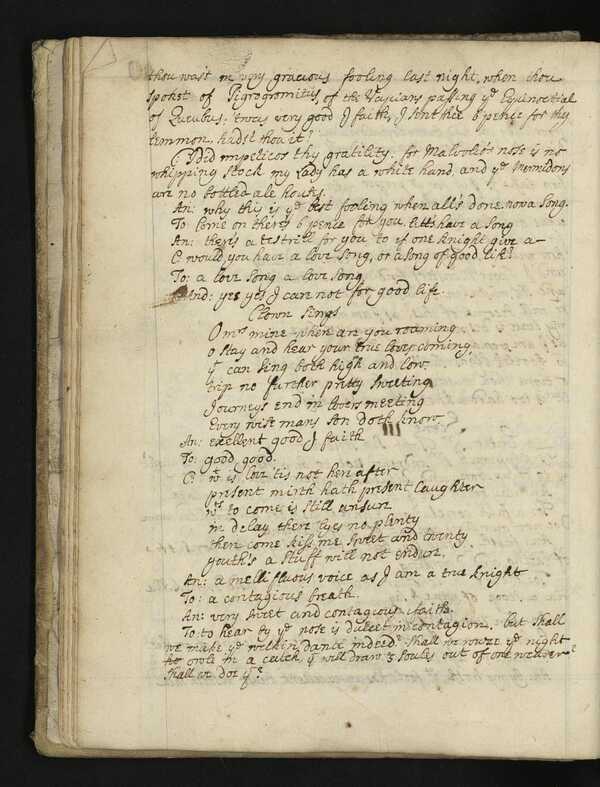 thou wast in very gracious fooling last night, when thou
spokst of Pigrogromitus, of the Vapians passing yᵉ Equinoctial
of Queubus, twas very good I faith, I sent thee 6 pence for thy
lemmon, hadst thou it?
C: I did impeticos thy gratility: for Malvolio's nose is no
whipping stock my Lady has a white hand and yᵉ mermidons
are no bottled ale houses.
An: why this is yᵉ best fooling when all's done. now a song.
To: Come on there's 6 pence for you, lett's have a song
An: there's a testrill for you to if one knight give a-
C: would you have a love song, or a song of good life?
To: a love song a love song
And: yes yes I care not for good life.
Clown Sings
O mʳˢ mine when are you roaming
o stay and hear your true loves coming,
yᵗ can sing both high and low.
trip no further pretty sweeting
Journeys end in lovers meeting
Every wise mans son doth know
An: exellent good I faith
To: good good.
C: wᵗ is love 'tis not hereafter
present mirth hath present laughter
wᵗˢ to come is still unsure
in delay there lyes no plenty
then come kiss me sweet and twenty
youth's a stuff will not endure,
An: a mellifluous voice as I am a true knight
To: a contagious breath.
An: very sweet and contagious ifaith.
To: to hear by yᵉ nose is dulcet in contagion. but shall
we make yᵉ welkin dance indeed? shall we rowze yᵉ night
owle in a catch yᵗ will draw 3 soules out of one weaver?
shall we doe yᵗ?